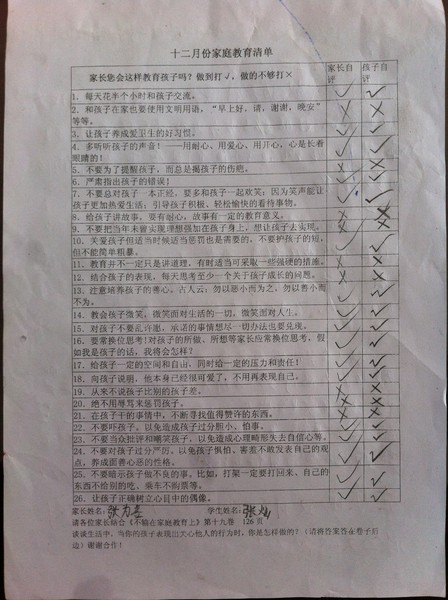 十二月份家庭教育清单
家长您会这样教育孩子吗？做到打√，做的不够打×
家长自评
孩子自评
1、每天花半个小时和孩子交流。 √ √
2、和孩子在家也要使用文明用语，“早上好，请，谢谢，晚安” × ×
等等。
3、让孩子养成爱卫生的好习惯。 √ √
4、多听听孩子的声音！——用耐心、用爱心、用开心，心是长着 √ √
眼睛的！
5、不要为了提醒孩子，而总是揭孩子的伤疤。 × ×
6、严肃指出孩子的错误！ √ √
7、不要总对孩子一本正经，要多和孩子一起欢笑；因为笑声能让 √ √
孩子更加热爱生活；引导孩子积极、轻松愉快的看待事物。
8、给孩子讲故事，要有耐心，故事有一定的教育意义。 × ×
9、不要把当年未曾实现理想强加在孩子身上，想让孩子去实现。 × ×
10、关爱孩子但适当时候适当惩罚也是需要的，不要护孩子的短， √ √
但不能简单粗暴。
11、教育并不一定只是讲道理，有时适当可采取一些强硬的措施。 × ×
12、结合孩子的表现，每天思考至少一个关于孩子成长的问题。 × ×
13、注意培养孩子的善心。古人云：勿以恶小而为之，勿以善小而 √ √
不为。
14、教会孩子微笑，微笑面对生活的一切，微笑面对人生。 √ √
15、对孩子不要乱许愿，承诺的事情想尽一切办法也要兑现。 √ √
16、要常换位思考！对孩子的所做、所想等家长应常换位思考，假 √ √
如我是孩子的话，我将会怎样？
17、给孩子一定的空间和自由，同时给一定的压力和责任！ √ √
18、向孩子说明，他本身已经很可爱了，不用再表现自己。 √ √
19、从来不说孩子比别的孩子差。 × ×
20、绝不用辱骂来惩罚孩子。 × ×
21、在孩子干的事情中，不断寻找值得赞许的东西。 × ×
22、不要吓孩子，以免造成孩子过分胆小、怕事。 √ √
23、不要当众批评和嘲笑孩子，以免造成心理畸形失去自信心等。 √ √
24、不要对孩子过分严厉，以免孩子惧怕、害羞不敢发表自己的观 √ √
点，养成面善心恶的性格。
25、不要暗示孩子做不良的事，比如，打架一定要打回来、自己的 √ √
东西不给别的吃、乘车不购票等。
26、让孩子正确树立心目中的偶像。 √ √
家长姓名： 学生姓名：张灿
请各位家长结合《不输在家庭教育上》第十九卷 126 页
谈谈生活中，当你的孩子表现出关心他人的行为时，你是怎样做的？（请将答案答在卷子后
边）谢谢合作！